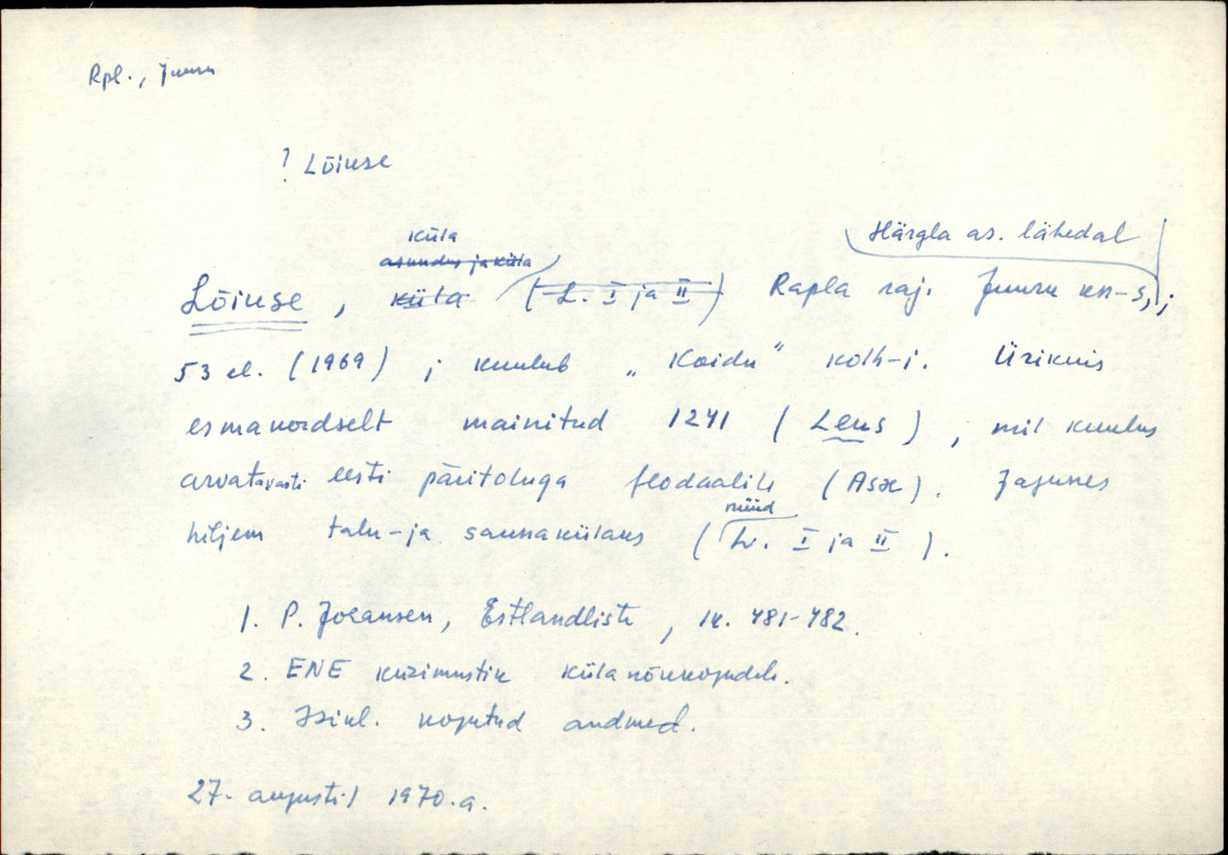 Rpl., Juuru
? Lõiuse
küla
asundus ja küla
Härgla as. lähedal
Lõiuse, küla (L. I ja II) Rapla raj. Juuru kn-s,;
53 el. (1969); kuulub „Koidu" kolh-i. Ürikuis
esmakordselt mainitud 1241 (Leus), mil kuulus
arvatavasti eesti päritoluga feodaalile (Asæ). Jagunes
nüüd
hiljem talu- ja saunakülaks (L. I ja II).
1. P. Johansen, Estlandliste, lk. 481-482.
2. ENE küsimustik külanõukogudele.
3. Isikl. kogutud andmed.
27. augustil 1970.a.